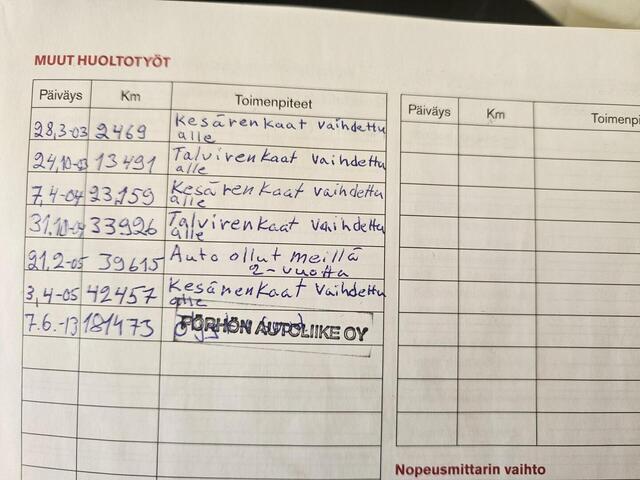 MUUT HUOLTOTYÖT
Päiväys Km Toimenpiteet
28,3-03 2469 Kesärenkaat vaihdettu
alle
24,10-03 13491 Talvirenkaat vaihdettu
alle
7,4-04 23,159 Kesärenkaat vaihdettu
alle
31.10-04 33926 Talvirenkaat vaihdettu
alle
21,2-05 39615 Auto ollut meillä
2-vuotta
3,4-05 42457 Kesärenkaat vaihdettu
alle
7.6.-13 181473 PÖRHÖN AUTOLIIKE OY
Päiväys Km Toimenpi
Nopeusmittarin vaihto